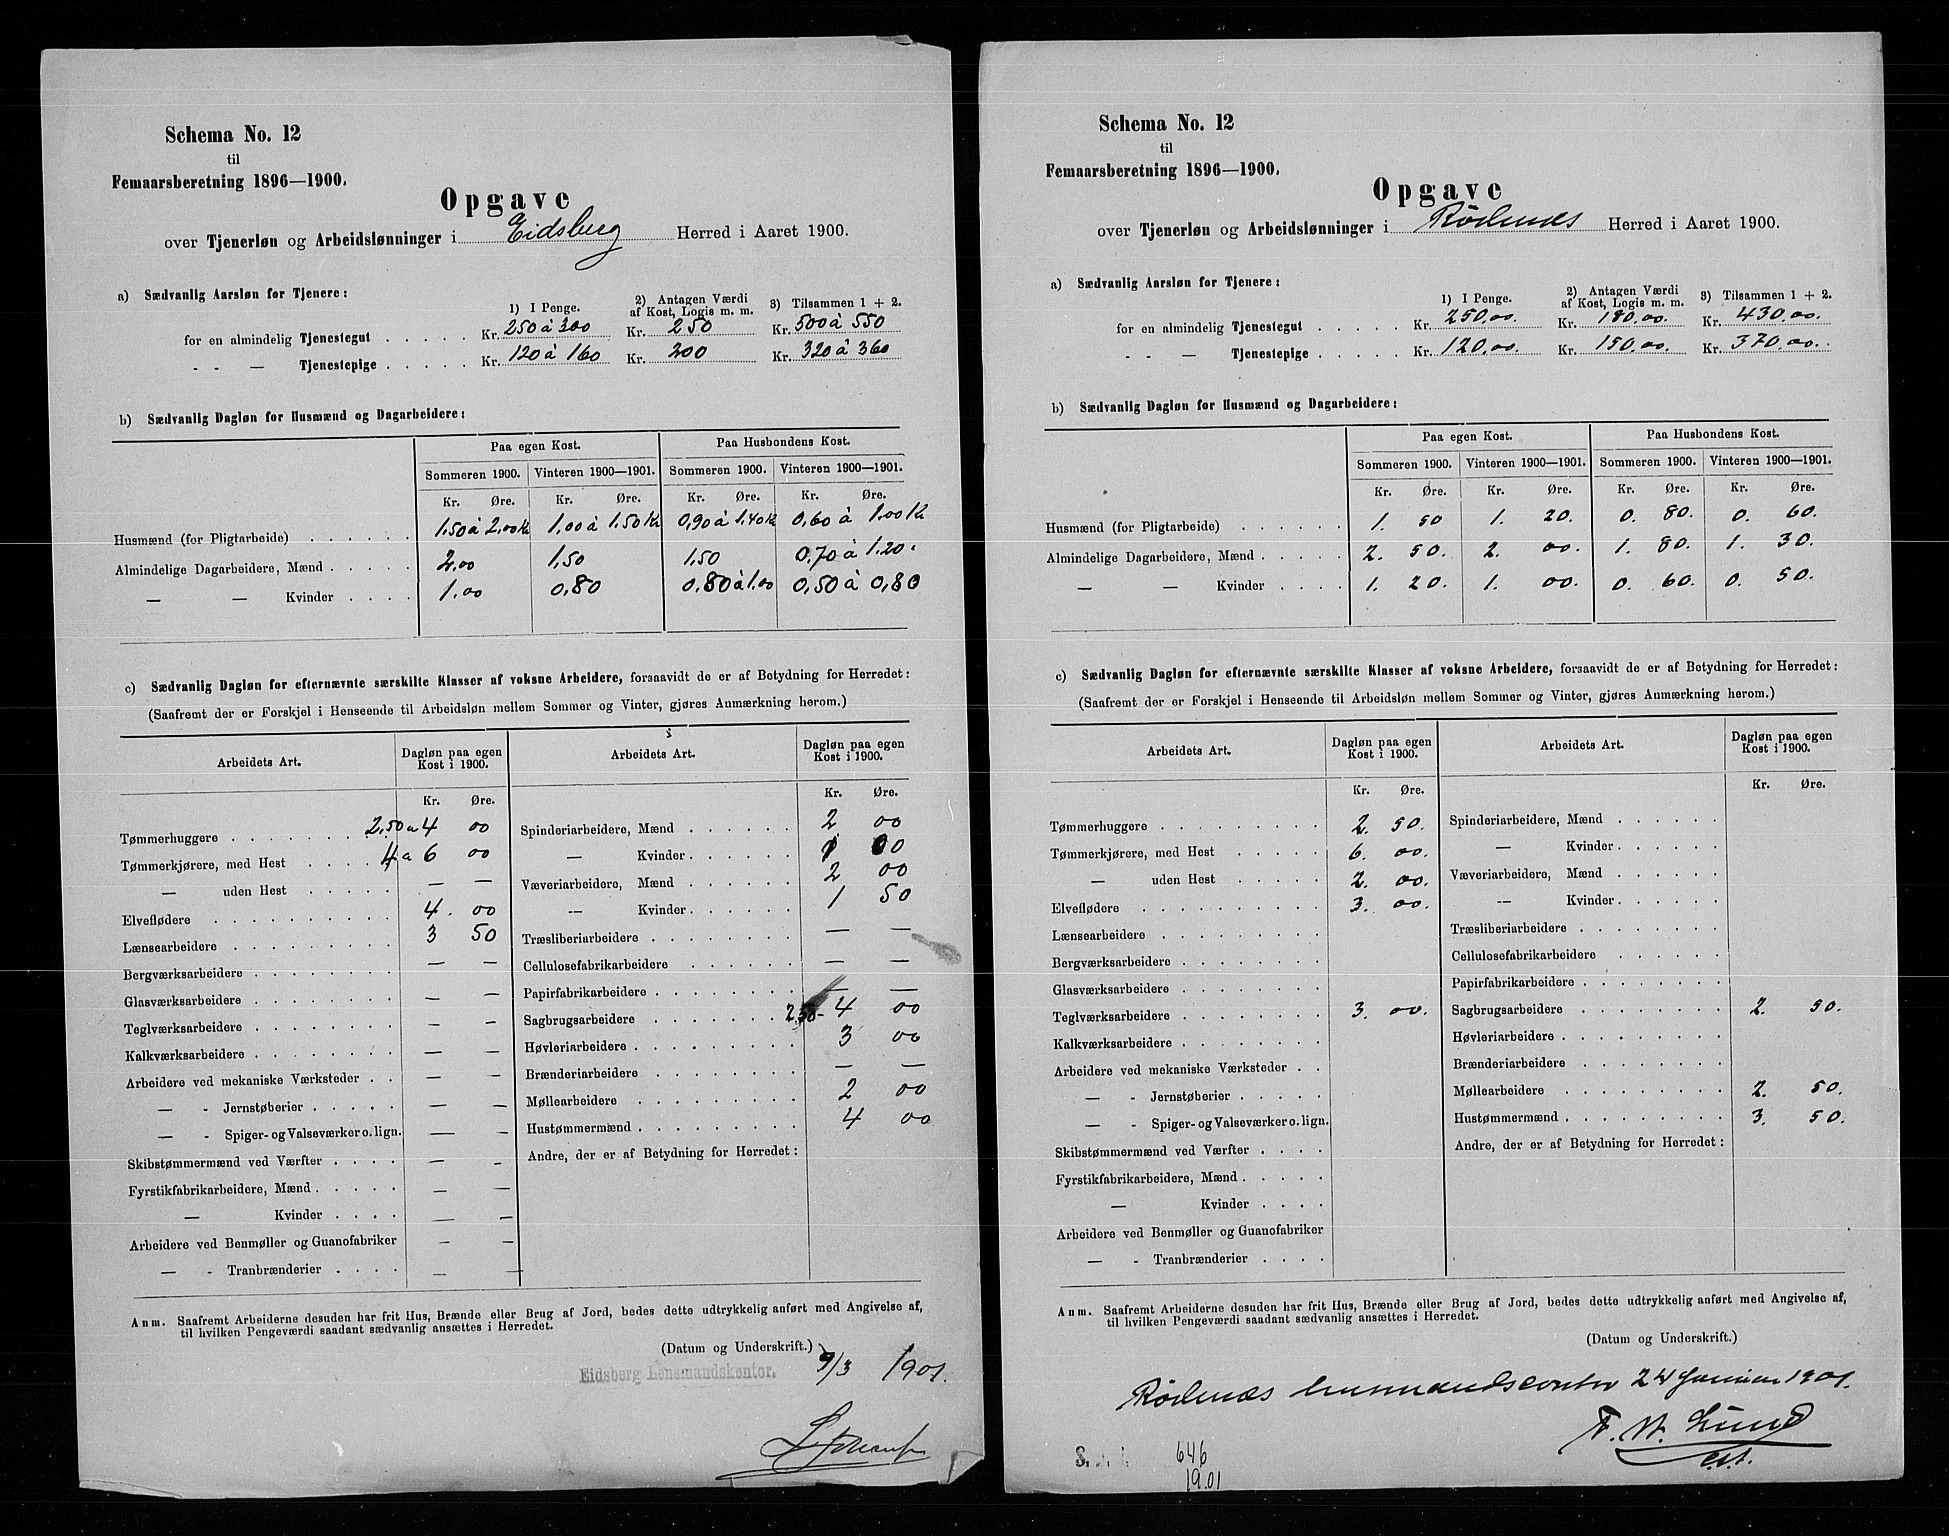 Schema No. 12
til
Femaarsberetning 1896—1900.
Opgave
over Tjenerløn og Arbeidslønninger i Eidsberg Herred i Aaret 1900.
a) Sædvanlig Aarsløn for Tjenere:
1) I Penge. 2) Antagen Værdi af Kost, Logis m. m. 3) Tilsammen 1 + 2.
for en almindelig Tjenestegut . . . . . Kr. 250 à 300 Kr. 250 Kr. 500 à 550
- - — Tjenestepige . . . . . Kr. 120 à 160 Kr. 200 Kr. 320 à 360
b) Sædvanlig Dagløn for Husmænd og Dagarbeidere:
Paa egen Kost. Paa Husbondens Kost.
Sommeren 1900. Vinteren 1900—1901. Sommeren 1900. Vinteren 1900—1901.
Kr. Øre. Kr. Øre. Kr. Øre. Kr. Øre.
Husmænd (for Pligtarbeide) . . . . . . 1,50 à 2,00 Kr 1,00 à 1,50 Kr 0,90 à 1,40 K 0,60 à 1,00 K
Almindelige Dagarbeidere, Mænd . . . . . 2,00 1,50 1,50 0,70 à 1,20
— — Kvinder . . . . 1,00 0,80 0,80 à 1,00 0,50 à 0,80
c) Sædvanlig Dagløn for efternævnte særskilte Klasser af voksne Arbeidere, forsaavidt de er af Betydning for Herredet:
(Saafremt der er Forskjel i Henseende til Arbeidsløn mellem Sommer og Vinter, gjøres Anmærkning herom.)
Arbeidets Art. Dagløn paa egen Kost i 1900. Arbeidets Art. Dagløn paa egen Kost i 1900.
Kr. Øre. Kr. Øre.
Tømmerhuggere 2,50 a 4 00 Spinderiarbeidere, Mænd 2 00
Tømmerkjørere, med Hest 4 a 6 00 — Kvinder 1 00
— uden Hest — — Væveriarbeidere, Mænd 2 00
Elveflødere 4. 00 — Kvinder 1 50
Lænsearbeidere 3 50 Træsliberiarbeidere — —
Bergværksarbeidere — — Cellulosefabrikarbeidere — —
Glasværksarbeidere — — Papirfabrikarbeidere — —
Teglværksarbeidere — — Sagbrugsarbeidere 2,50- 4 00
Kalkværksarbeidere — — Høvleriarbeidere 3 00
Arbeidere ved mekaniske Værksteder — — Brænderiarbeidere — —
— - Jernstøberier — — Møllearbeidere 2 00
— - Spiger- og Valseværker o. lign. — — Hustømmermænd 4 00
Skibstømmermænd ved Værfter — — Andre, der er af Betydning for Herredet:
Fyrstikfabrikarbeidere, Mænd — —
— Kvinder — —
Arbeidere ved Benmøller og Guanofabriker — —
— - Tranbrænderier — —
Anm. Saafremt Arbeiderne desuden har frit Hus, Brænde eller Brug af Jord, bedes dette udtrykkelig anført med Angivelse af,
til hvilken Pengeværdi saadant sædvanlig ansættes i Herredet.
(Datum og Underskrift.)
Eidsberg Lensmandskontor. 9/3 1901.
Schema No. 12
til
Femaarsberetning 1896—1900.
Opgave
over Tjenerløn og Arbeidslønninger i Rödenæs Herred i Aaret 1900.
a) Sædvanlig Aarsløn for Tjenere:
1) I Penge. 2) Antagen Værdi af Kost, Logis m. m. 3) Tilsammen 1 + 2.
for en almindelig Tjenestegut . . . . . Kr. 250,00. Kr. 180,00. Kr. 430,00.
- - — Tjenestepige . . . . . Kr. 120,00. Kr. 150,00. Kr. 370,00.
b) Sædvanlig Dagløn for Husmænd og Dagarbeidere:
Paa egen Kost. Paa Husbondens Kost.
Sommeren 1900. Vinteren 1900—1901. Sommeren 1900. Vinteren 1900—1901.
Kr. Øre. Kr. Øre. Kr. Øre. Kr. Øre.
Husmænd (for Pligtarbeide) . . . . . . 1. 50 1. 20. 0. 80. 0. 60.
Almindelige Dagarbeidere, Mænd . . . . . 2. 50. 2. 00. 1. 80. 1. 30.
— — Kvinder . . . . 1. 20. 1. 00. 0. 60. 0. 50.
c) Sædvanlig Dagløn for efternævnte særskilte Klasser af voksne Arbeidere, forsaavidt de er af Betydning for Herredet:
(Saafremt der er Forskjel i Henseende til Arbeidsløn mellem Sommer og Vinter, gjøres Anmærkning herom.)
Arbeidets Art. Dagløn paa egen Kost i 1900. Arbeidets Art. Dagløn paa egen Kost i 1900.
Kr. Øre. Kr. Øre.
Tømmerhuggere 2. 50. Spinderiarbeidere, Mænd
Tømmerkjørere, med Hest 6. 00. — Kvinder
— uden Hest 2. 00. Væveriarbeidere, Mænd
Elveflødere 3. 00. — Kvinder
Lænsearbeidere Træsliberiarbeidere
Bergværksarbeidere Cellulosefabrikarbeidere
Glasværksarbeidere Papirfabrikarbeidere
Teglværksarbeidere 3. 00. Sagbrugsarbeidere 2. 50.
Kalkværksarbeidere Høvleriarbeidere
Arbeidere ved mekaniske Værksteder Brænderiarbeidere
— - Jernstøberier Møllearbeidere 2. 50.
— - Spiger- og Valseværker o. lign. Hustømmermænd 3. 50.
Skibstømmermænd ved Værfter Andre, der er af Betydning for Herredet:
Fyrstikfabrikarbeidere, Mænd
— Kvinder
Arbeidere ved Benmøller og Guanofabriker
— - Tranbrænderier
Anm. Saafremt Arbeiderne desuden har frit Hus, Brænde eller Brug af Jord, bedes dette udtrykkelig anført med Angivelse af,
til hvilken Pengeværdi saadant sædvanlig ansættes i Herredet.
(Datum og Underskrift.)
Rödenæs lensmandscontor 24 Januar 1901.
F. W. Lund
cst.
646
1901